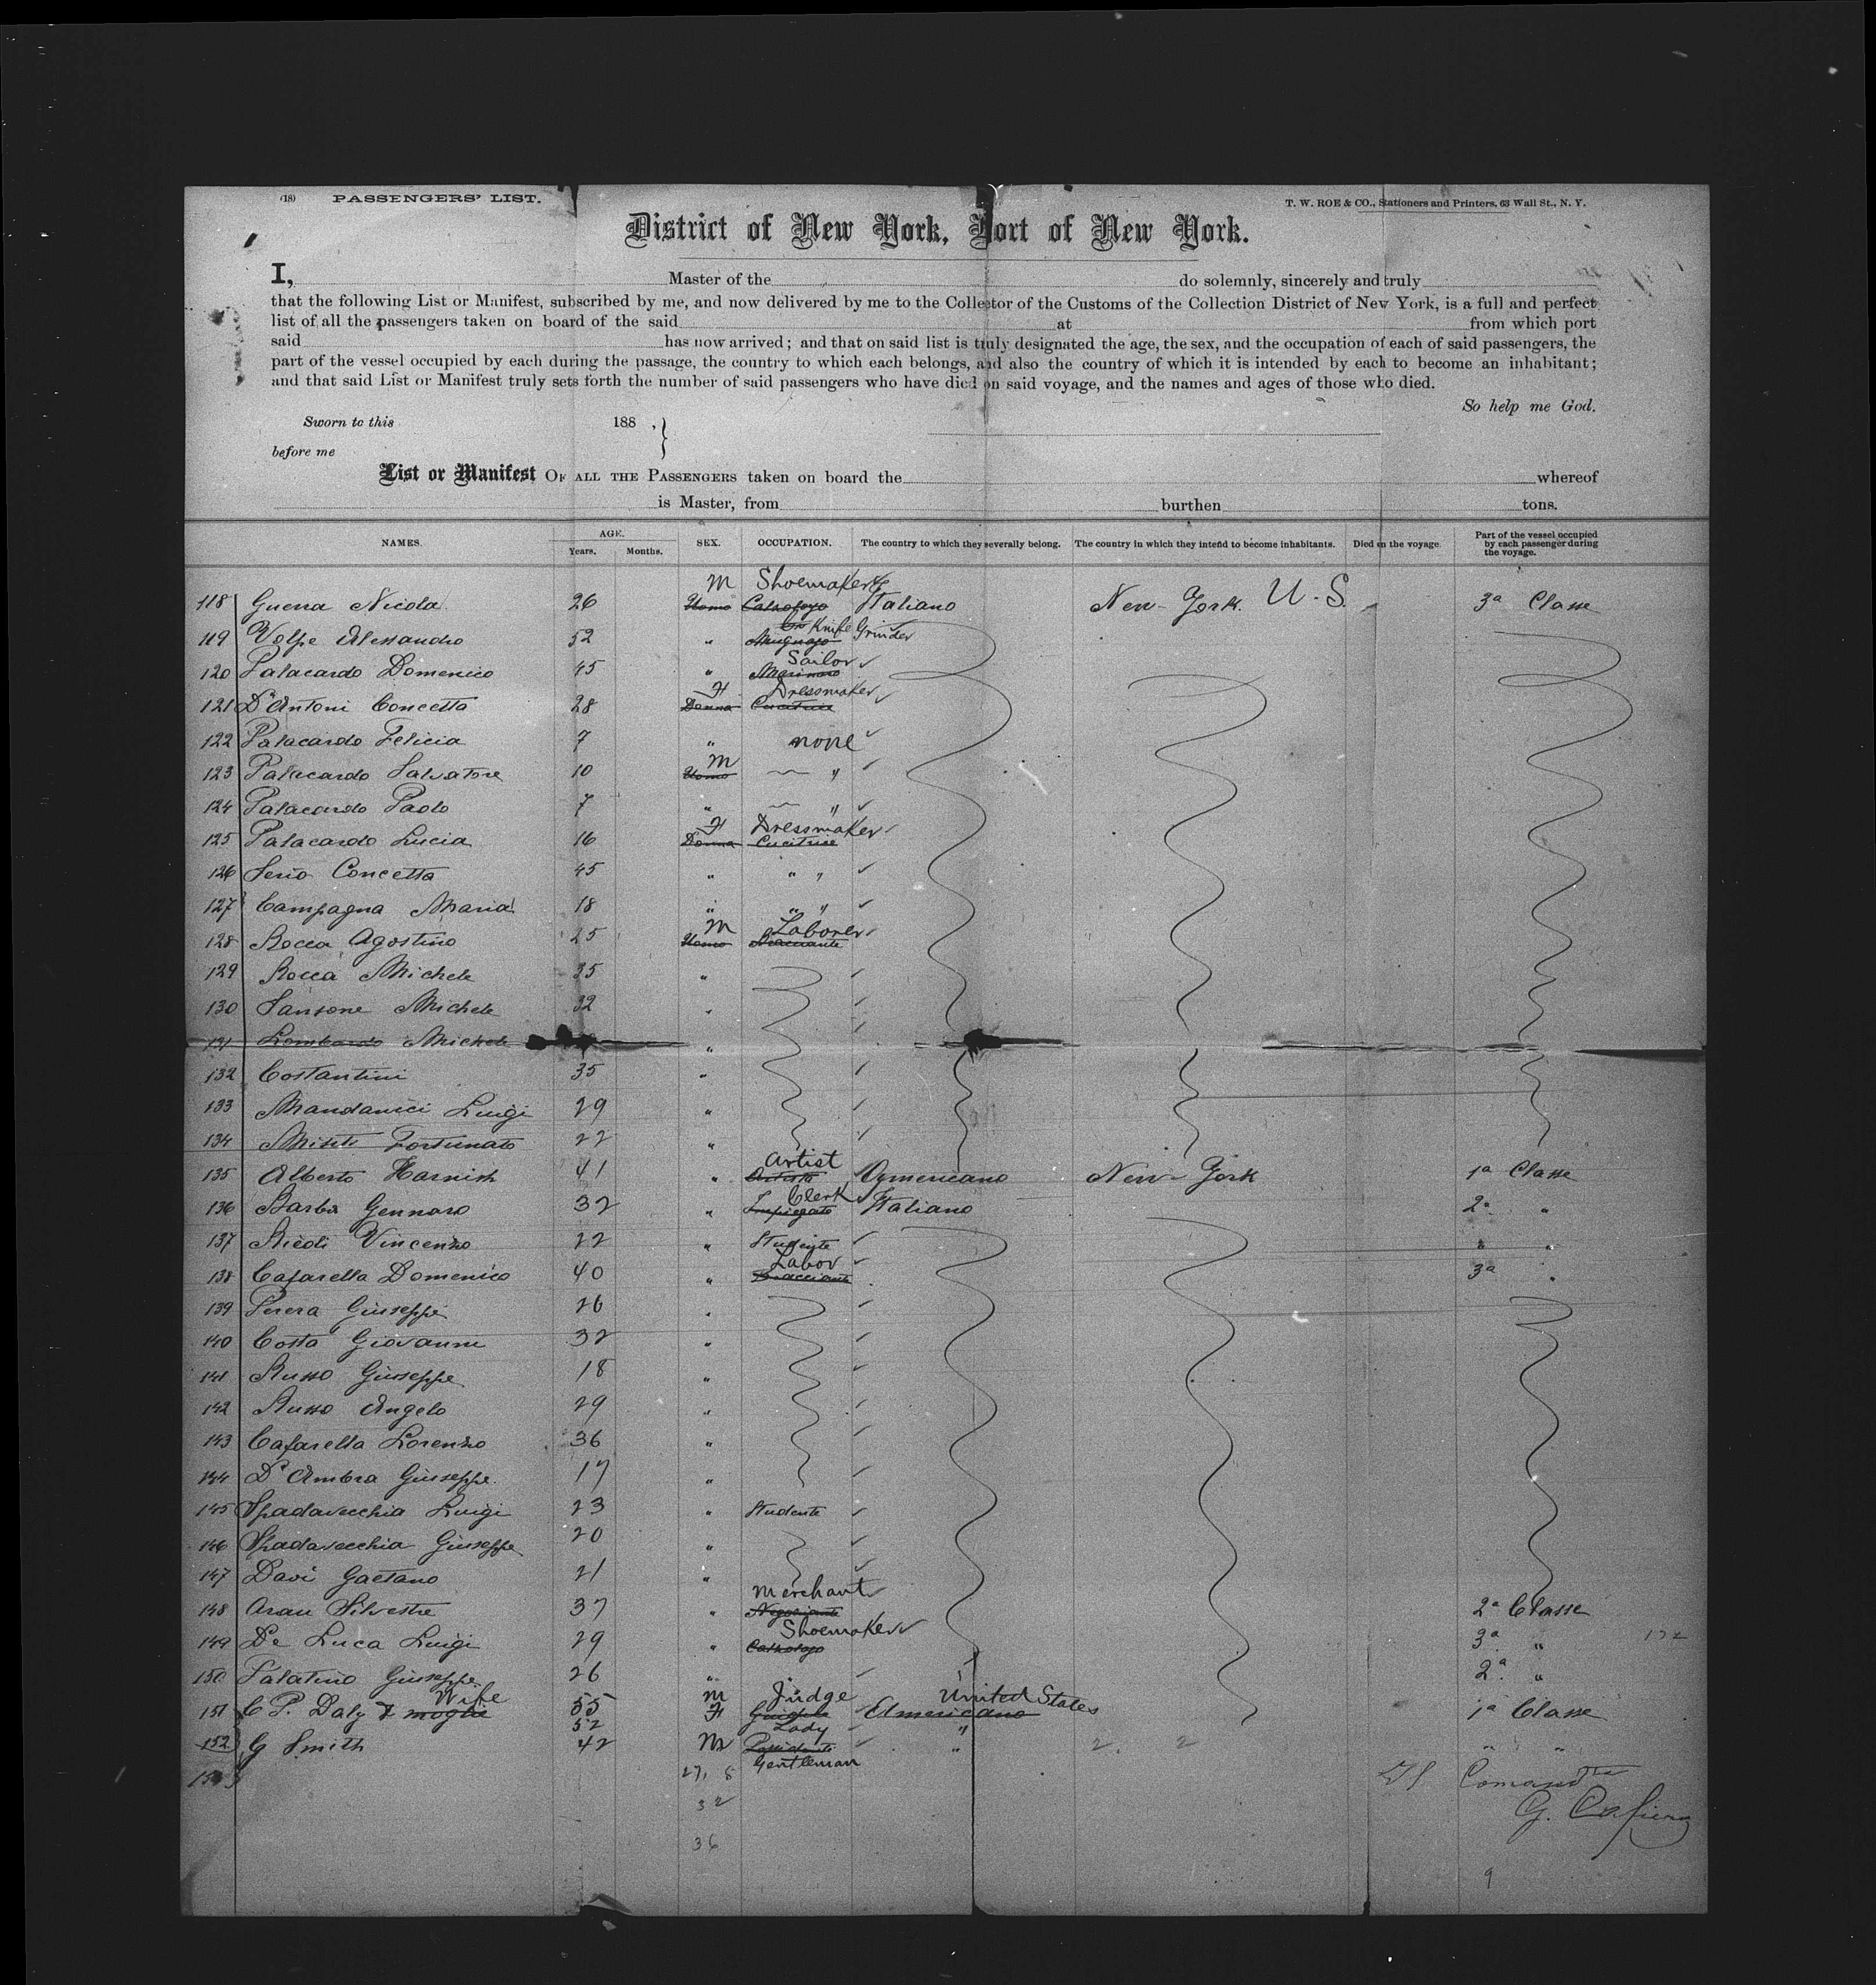 (18) PASSENGERS' LIST. T. W. ROE & CO., Stationers and Printers, 63 Wall St., N. Y.
District of New York, Port of New York.
I, Master of the do solemnly, sincerely and truly
that the following List or Manifest, subscribed by me, and now delivered by me to the Collector of the Customs of the Collection District of New York, is a full and perfect
list of all the passengers taken on board of the said at from which port
said has now arrived; and that on said list is truly designated the age, the sex, and the occupation of each of said passengers, the
part of the vessel occupied by each during the passage, the country to which each belongs, and also the country of which it is intended by each to become an inhabitant;
and that said List or Manifest truly sets forth the number of said passengers who have died on said voyage, and the names and ages of those who died.
So help me God.
Sworn to this 188 , }
before me
List or Manifest OF ALL THE PASSENGERS taken on board the whereof
is Master, from burthen tons.
NAMES. AGE. Years. Months. SEX. OCCUPATION. The country to which they severally belong. The country in which they intend to become inhabitants. Died on the voyage. Part of the vessel occupied by each passenger during the voyage.
M Shoemaker
118 Guerra Nicola 26 Uomo Calzolajo Italiano New-York. U.S. 3a Classe
Knife Grinder
119 Volpe Alessandro 52 "
Sailor
120 Palacardo Domenico 45 " Marinaro
F Dressmaker
121 D'Antoni Concetta 28 Donna Cucitrice
122 Palacardo Felicia 7 " none
M
123 Palacardo Salvatore 10 Uomo "
124 Palacardo Paolo 7 " "
F Dressmaker
125 Palacardo Lucia 16 Donna Cucitrice
126 Serio Concetta 45 " " "
127 Campagna Maria 18 " " "
M Laborer
128 Rocca Agostino 25 Uomo Bracciante
129 Rocca Michele 35 "
130 Sansone Michele 32 "
131 Lombardo Michele "
132 Costantini 35 "
133 Mandanici Luigi 29 "
134 Misiti Fortunato 22 "
Artist
135 Alberto Harnish 41 " Artista Americano New-York 1a Classe
Clerk
136 Barba Gennaro 32 " Impiegato Italiano 2a "
137 Riedi Vincenzo 22 " Studente " "
Labor
138 Cafarella Domenico 40 " Bracciante 3a "
139 Perera Giuseppe 26 "
140 Costa Giovanni 32 "
141 Russo Giuseppe 18 "
142 Russo Angelo 29 "
143 Cafarella Lorenzo 36 "
144 D'Ambra Giuseppe 17 "
145 Spadavecchia Luigi 23 " Studente
146 Spadavecchia Giuseppe 20 "
147 Davi Gaetano 21 "
Merchant
148 Arau Silvestre 37 " Negoziante 2a Classe
Shoemaker
149 De Luca Luigi 29 " Calzolajo 3a "
150 Palatino Giuseppe 26 " " 2a "
Wife M Judge United States
151 C P. Daly & moglie 55 F Giudice Americano 1a Classe
52 Lady "
152 G Smith 42 M Possidente " 2. 2 " "
Gentleman
153 27, 8
32
G. Cafiero
36
9